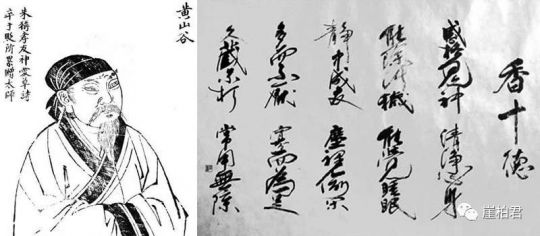 黄山谷
孝友神草詩
卒于貶所累贈太師
香十德
感格鬼神 清淨心身
能除污穢 能覺睡眠
靜中成友 塵裡偷閑
多而不厭 寡而為足
久藏不朽 常用無障
崖柏君